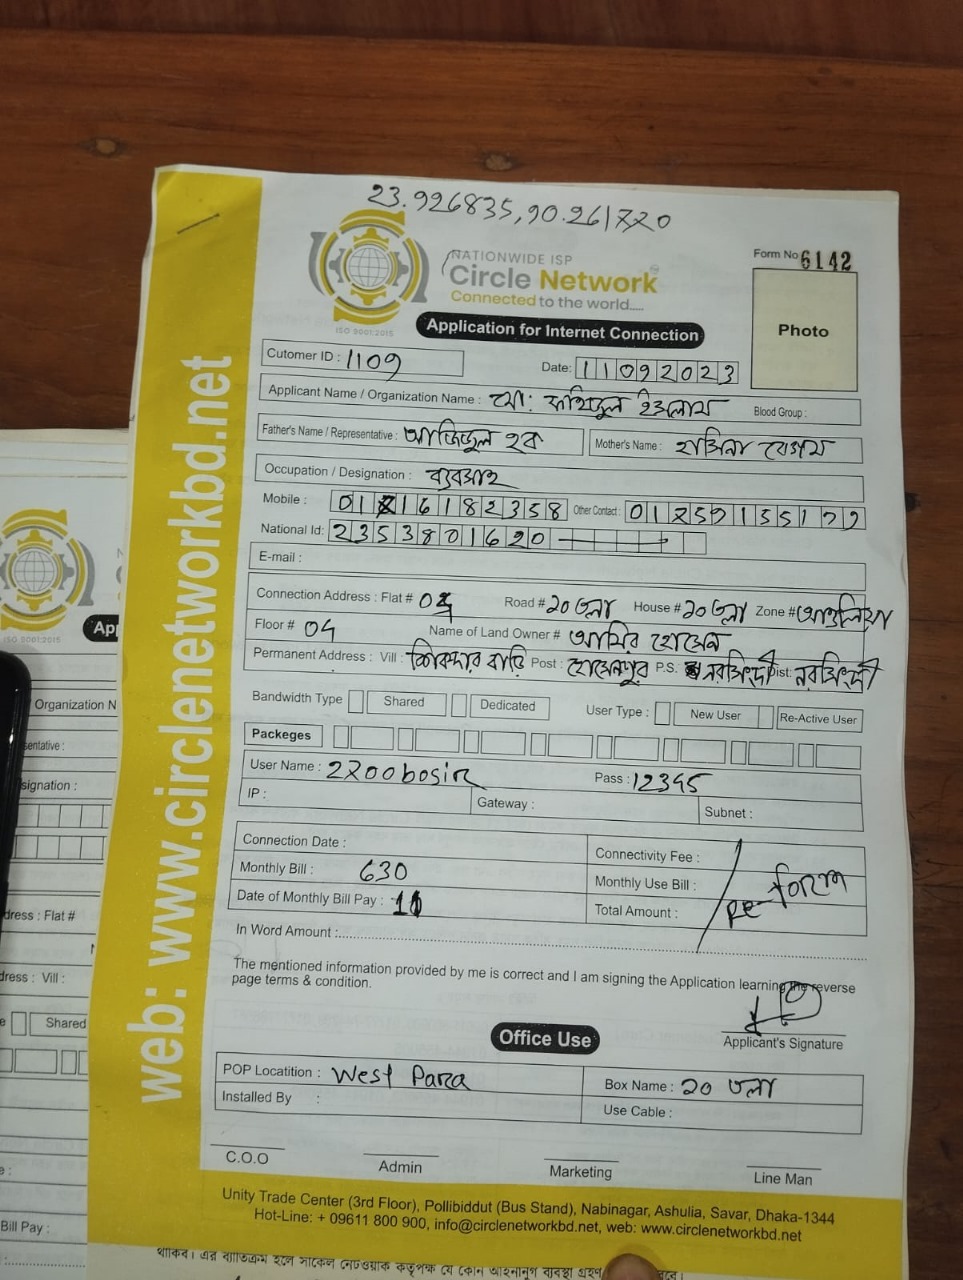 23.926835,90.261770
NATIONWIDE ISP
Circle Network
Connected to the world.....
ISO 9001:2015
Form No 6142
Photo
Application for Internet Connection
Cutomer ID : 1109 Date: 11092023
Applicant Name / Organization Name : মো: ফহিদুল ইসলাম Blood Group :
Father's Name / Representative : আজিজুল হক Mother's Name : হাসিনা বেগম
Occupation / Designation : ব্যবসাহ
Mobile : 01 16182358 Other Contact :
National Id: 2353801620
E-mail :
Connection Address : Flat # 04 Road # ১০ তলা House # ১০ তলা Zone # আশুলিয়া
Floor # 04 Name of Land Owner # আমির হোসেন
Permanent Address : Vill : শিকদার বাড়ি Post : হোসেনপুর P.S. নরসিংদী Dist: নরসিংদী
Bandwidth Type Shared Dedicated User Type : New User Re-Active User
Packeges
User Name : 2700bosir Pass : 12345
IP : Gateway : Subnet :
Connection Date : Connectivity Fee :
Monthly Bill : 630 Monthly Use Bill :
Date of Monthly Bill Pay : Total Amount :
Re-form
In Word Amount :
The mentioned information provided by me is correct and I am signing the Application learning the reverse
page terms & condition.
Applicant's Signature
Office Use
POP Locatition : West Para Box Name : ১০ তলা
Installed By : Use Cable :
C.O.O Admin Marketing Line Man
Unity Trade Center (3rd Floor), Pollibiddut (Bus Stand), Nabinagar, Ashulia, Savar, Dhaka-1344
Hot-Line: + 09611 800 900, info@circlenetworkbd.net, web: www.circlenetworkbd.net
web: www.circlenetworkbd.net
থাকিব। এর ব্যতিক্রম হলে সার্কেল নেটওয়ার্ক কর্তৃপক্ষ যে কোন আইনানুগ ব্যবস্থা গ্রহণ
ISO 9001:2015
Ap
Organization N
sentative :
signation :
dress : Flat #
dress : Vill :
Shared
Bill Pay :